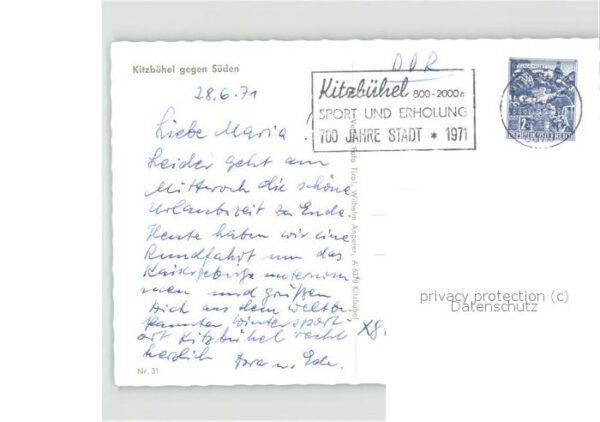 Kitzbühel gegen Süden
DDR
28.6.71
Kitzbühel 800-2000m
SPORT UND ERHOLUNG
700 JAHRE STADT * 1971
Liebe Maria!
Leider geht am
Mittwoch die schöne
Urlaubszeit zu Ende.
Heute haben wir eine
Rundfahrt um das
Kaisergebirge unternom
men und grüßen
Dich aus dem weltbe
kannten Wintersport-
ort Kitzbühel recht
herzlich
u. Ede.
Nr. 31
Foto Tirol, Wilhelm Angerer, A-6370 Kitzbühel
privacy protection (c)
Datenschutz